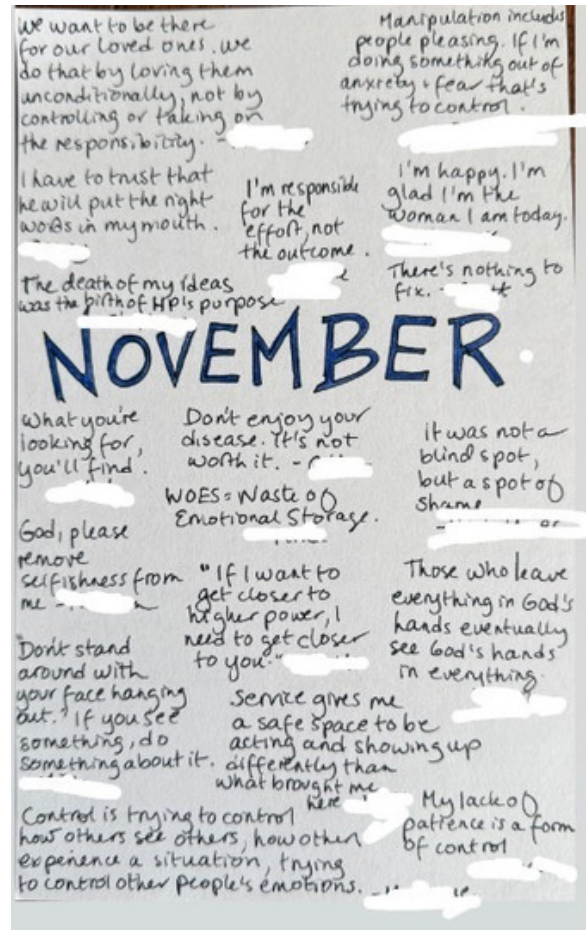 we want to be there
for our loved ones. we
do that by loving them
unconditionally, not by
controlling or taking on
the responsibility. -
Manipulation includes
people pleasing. If I'm
doing something out of
anxiety + fear that's
trying to control.
I have to trust that
he will put the right
words in my mouth.
I'm responsible
for the
effort, not
the outcome.
I'm happy. I'm
glad I'm the
woman I am today.
The death of my ideas
was the birth of HP's purpose
There's nothing to
fix. -
NOVEMBER.
What you're
looking for,
you'll find.
Don't enjoy your
disease. It's not
worth it. -
it was not a
blind spot,
but a spot of
shame
WOES = Waste of
Emotional Storage.
God, please
remove
selfishness from
me -
"If I want to
get closer to
higher power, I
need to get closer
to you."
Those who leave
everything in God's
hands eventually
see God's hands
in everything.
"Don't stand
around with
your face hanging
out." If you see
something, do
something about it.
Service gives me
a safe space to be
acting and showing up
differently than
what brought me
here
Control is trying to control
how others see others, how other
experience a situation, trying
to control other people's emotions. -
My lack of
patience is a form
of control